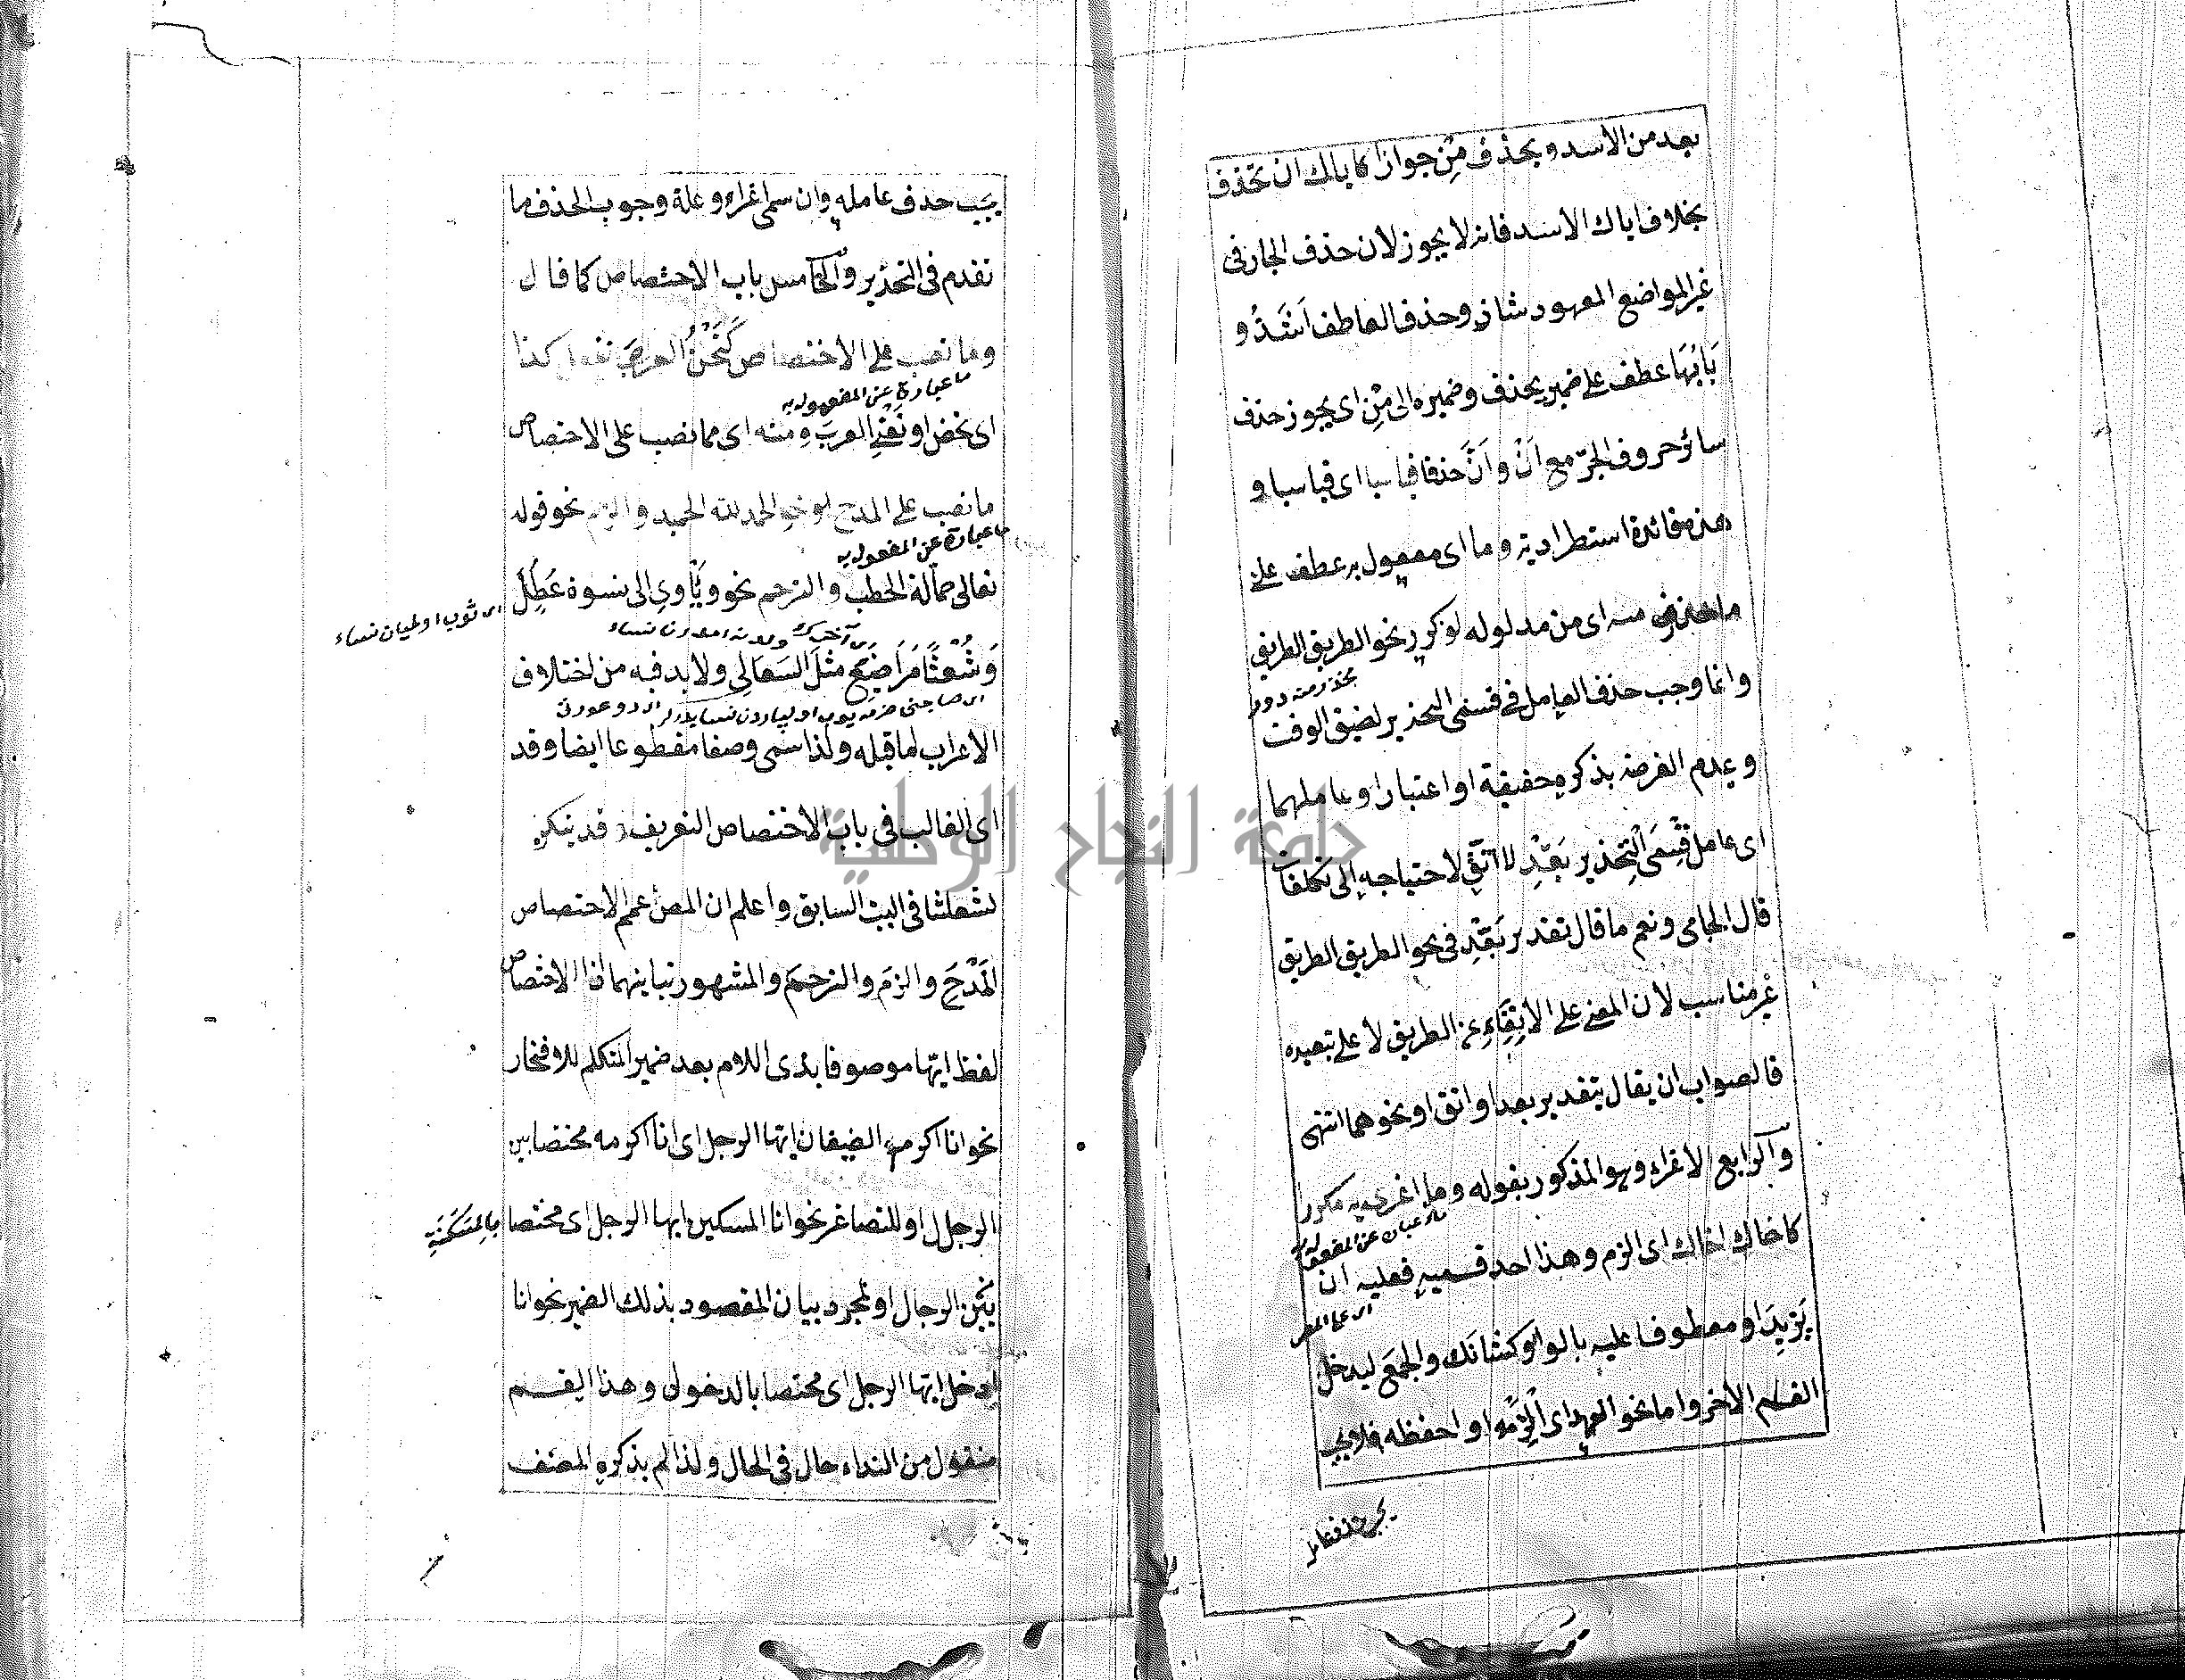 بعد من الاسد ويحذف من جوازا كاياك ان تحذف
بخلاف اياك الاسد فانه لا يجوز لان حذف الجار في
غير المواضع المعهود شاذ وحذف العاطف اشذ و
بابها عطف على ضمير يحذف وضميره الى من اى يجوز حذف
سائر حروف الجر مع ان وان حذفا قياسا اى قياسيا و
هذه فائدة استطرادية وما اى مفعول به عطف على
ما حذر منه اى من مدلوله لو كرر نحو الطريق الطريق
وانما وجب حذف العامل فى قسمى التحذير لضيق الوقت
وعدم الفرصة بذكره حقيقة او اعتبارا وعاملهما
اى عامل قسمى التحذير بعد لا اتق لاحتياجه الى تكلفات
قال الجامى ونعم ما قال تقدير بعد فى نحو الطريق الطريق
غير مناسب لان المعنى على الاتقاء عن الطريق لا على تبعيده
فالصواب ان يقال بتقدير بعد او اتق او نحوهما انتهى
والرابع الاغراء وهو المذكور بقوله وما اغرى به مكرر
ما عبارة عن المفعول به
كاخاك اخاك اى الزم وهذا احد قسميه فعليه ان
يزيد او معطوفا عليه بالواو كشانك والحج ليدخل
القسم الآخر واما نحو العهد اى الزمه او احفظه فلا يجب
يجب حذف عامله وان سمى اغراء وعلة وجوب الحذف ما
تقدم فى التحذير والخامس باب الاختصاص كما قال
وما نصب على الاختصاص كنحن العرب نفعل كذا
ما عبارة عن المفعول به
اى نخص او نعنى العرب ومنه اى مما نصب على الاختصاص
ما نصب على المدح نحو الحمد لله الحميد والذم نحو قوله
ما عبارة عن المفعول به
تعالى حمالة الحطب والترحم نحو ويأوى الى نسوة عطل
وشعثا مراضيع مثل السعالى ولا بد فيه من اختلاف
الاعراب لما قبله ولذا سمى وصفا مقطوعا ايضا وقد
اى الغالب فى باب الاختصاص التعريف وقد ينكر
كشعثا فى البيت السابق واعلم ان المص عمم الاختصاص
المدح والذم والترحم والمشهور تباينهما اذ الاختصاص
لفظ ايها موصوفا بذى اللام بعد ضمير المتكلم للافتخار
نحو انا اكرم الضيفان ايها الرجل اى انا اكرمه مختصا بين
الرجال او للتصاغر نحو انا المسكين ايها الرجل اى مختصا بالمسكنة
بين الرجال او لمجرد بيان المقصود بذلك الضمير نحو انا
ادخل ايها الرجل اى مختصا بالدخول وهذا القسم
منقول من النداء حال فى الحال ولذا لم يذكره المصنف
جامعة النجاح الوطنية